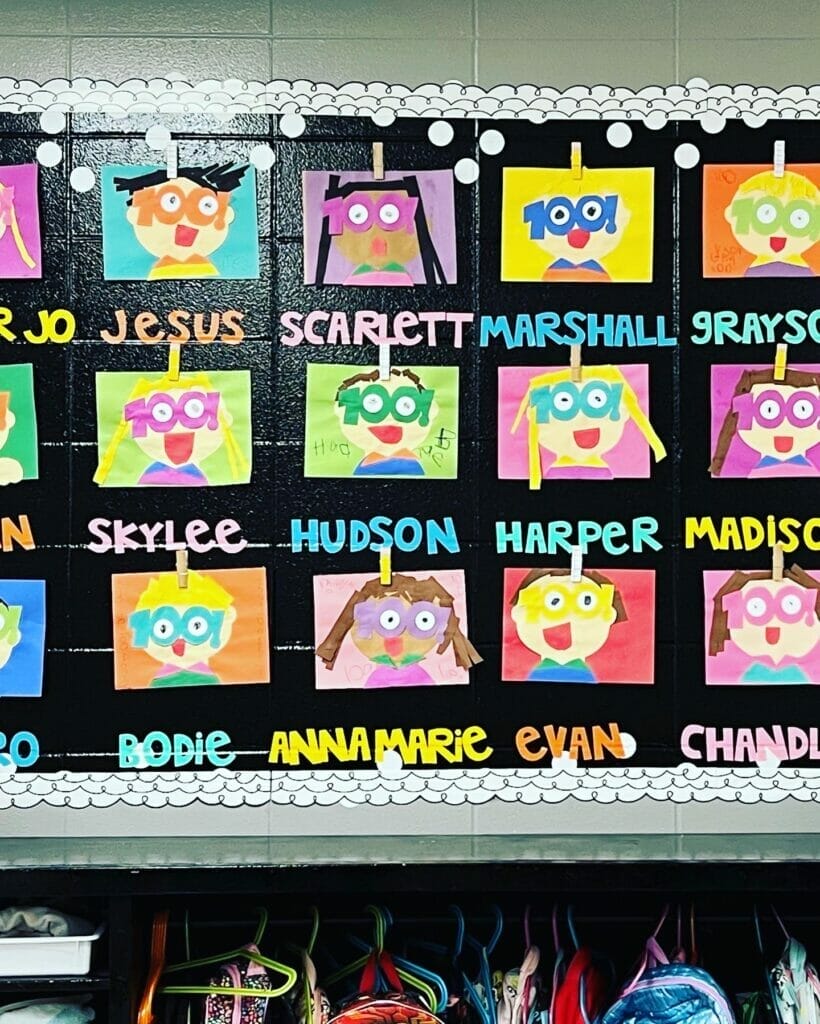 100! 100! 100! 100!
R JO JESUS SCARLETT MARSHALL GRAYSO
100! 100! 100! 100!
N SKYLEE HUDSON HARPER MADISO
100! 100! 100! 100!
RO BODIE ANNA MARIE EVAN CHANDL